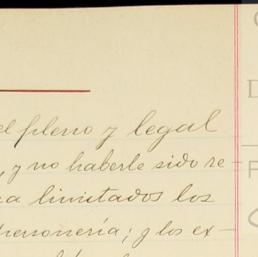 el pleno y legal
, y no haberle sido re-
a limitados los
personería; y los ex-